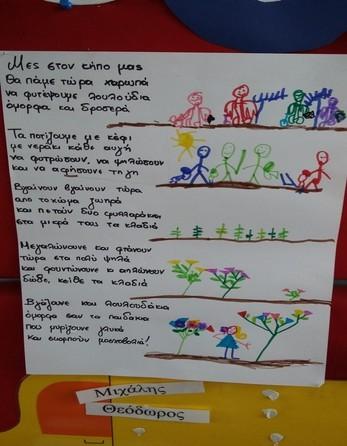 Μες στον κήπο μας
Θα πάμε τώρα χαρωπά
να φυτέψουμε λουλούδια
όμορφα και δροσερά
Τα ποτίζουμε με κέφι
με νεράκι κάθε αυγή
να φυτρώσουν, να ψηλώσουν
και να αφήσουνε τη γη
Βγαίνουν βγαίνουν τώρα
απο το χώμα ζωηρά
και πετούν δύο φυλλαράκια
στα μικρά τους τα κλαδιά
Μεγαλώνουνε και φτάνουν
τώρα στα πολύ ψηλά
και φουντώνουνε κι απλώνουν
δώθε, κείθε τα κλαδιά
Βγάζουνε και λουλουδάκια
όμορφα σαν τα παιδάκια
που μυρίζουν γλυκά
και σκορπούν μοσχοβολιά!
Μιχάλης
Θεόδωρος